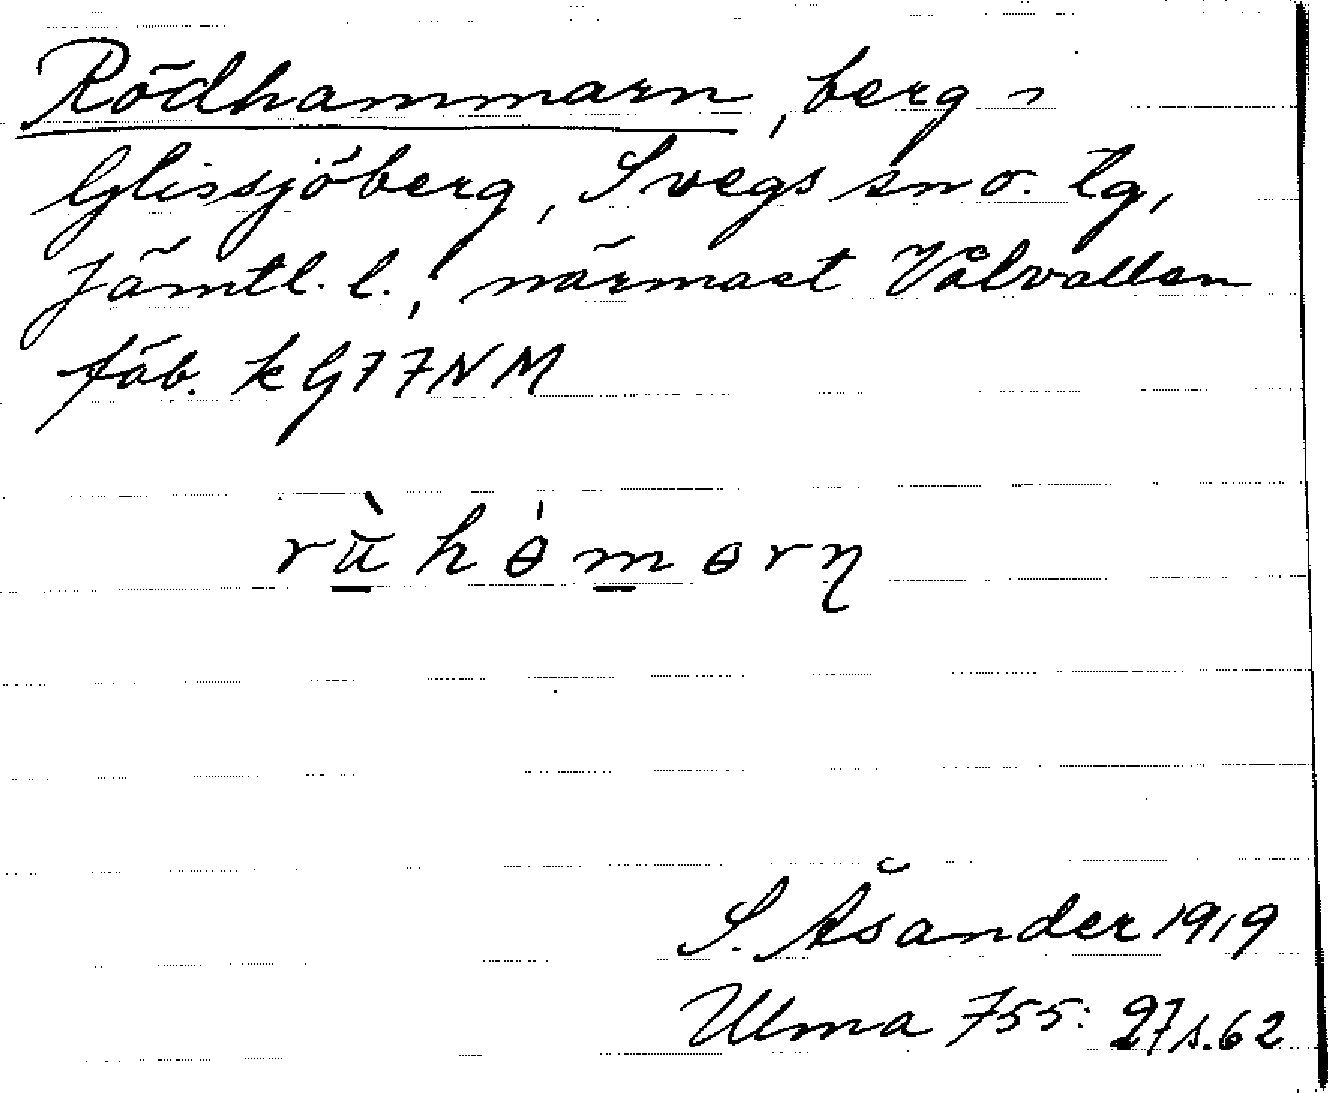 Rödhammarn, berg i
Glissjöberg, Svegs sn o. tg,
Jämtl. l., närmast Vålvallen
fäb. k G77NM
rù̠hɵ́m̠ɵrη
S. Åsander 1919
Ulma 755: 27 s. 62